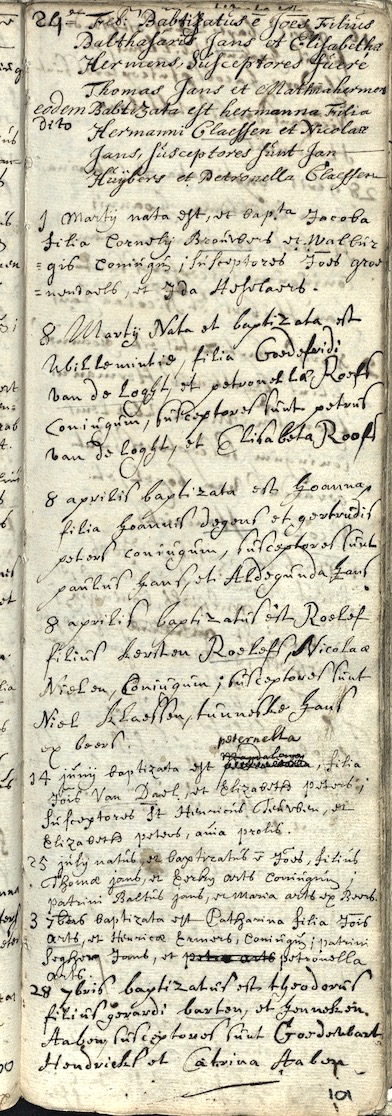 24 Feb. Babtizatus e Joes Filius
Balthasaris Jans et Elisabetha
Hermens, Susceptores fuere
Thomas Jans et Mathia hermen
eodem Babtizata est hermanna Filia
dito Hermanni Claessen et Nicolae
Jans, Susceptores sunt Jan
Huÿbers et Petronella Claessen
1 Martÿ nata est, et bapta Jacoba
filia Cornelÿ Brouwers et Walbur
=gis coniugum; susceptores Joes groe
=nendaels, et Ida Heselaers.
8 Martÿ Nata et baptizata est
Wbillemintie, filia Godefridi
van de Loght, et petronella Roefs
coniugum, susceptores sunt petrus
van de loght, et Elisabeta Roofs
8 aprilis baptizata est Joanna
filia Joannis degens et gertrudis
peters coniugum, susceptores sunt
paulus Jans, et Aldegunda Jans
8 aprilis baptizatus est Roelef
filius kersten Roelefs, Nicolaa
Nielen, Coniugum; susceptores sunt
Niel Klaessen, tunneske Jans
ex beers.
peternella
14 junÿ baptizata est, filia
Jois Van Dael, et Elizabeth peters;
susceptores st Henricus, et
Elizabeth peters, avia prolis.
25 julÿ natus, et baptizatus e Joes, filius
Thomæ Jans, et arts coniugum;
patrini Baltus Jans, et Maria arts ex Beers.
3 7bris baptizata est Catharina filia Jois
arts, et Henricæ Ermers, coniugum; patrini
Seghers Jans, et petro arts petronella
arts.
28 7bris baptizatus est theodorus
filius gerardi barten, et Jenneken
Aaben, susceptores sunt Goedewart
Hendricks et Catrina Aaben
101